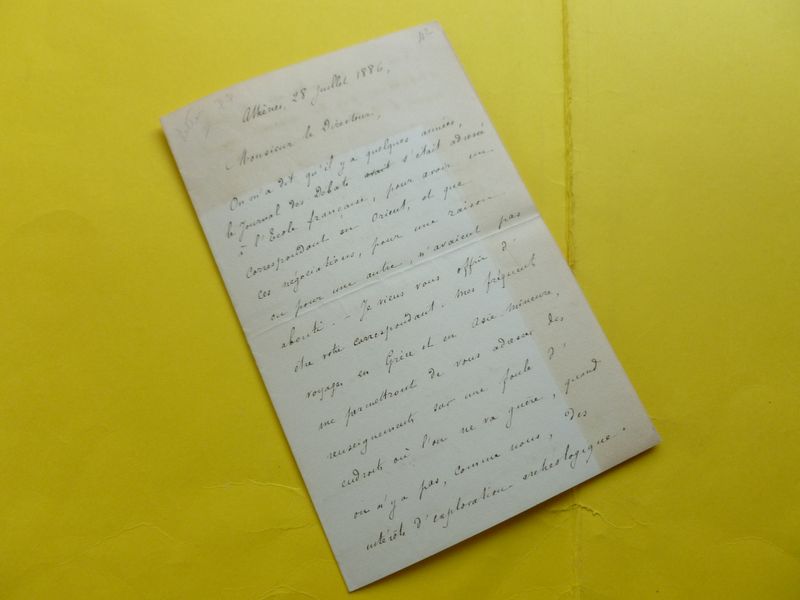 42
Athènes, 28 Juillet 1886,
Monsieur le Directeur,
On m'a dit qu'il y a quelques années,
le Journal des Débats avait s'était adressé
à l'École française, pour avoir un
correspondant en Orient, et que
ces négociations, pour une raison
ou pour une autre, n'avaient pas
abouti. — Je viens vous offrir d'
être votre correspondant. Mes fréquents
voyages en Grèce et en Asie mineure,
me permettront de vous adresser des
renseignements sur une foule d'
endroits où l'on ne va guère, quand
on n'y a pas, comme nous, des
intérêts d'exploration archéologique.